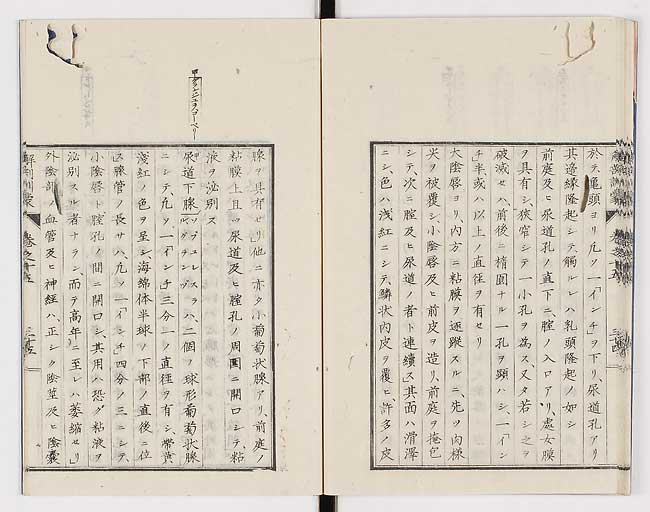 於テ龜頭ヨリ凡ソ一「インチ」ヲ下リ、尿道孔アリ
其邊緣隆起シテ、觸ルレハ乳頭隆起ノ如シ
前庭及ヒ尿道孔ノ直下ニ腟ノ入口アリ、處女膜
ヲ具有シ、狹窄シテ一小孔ヲ爲ス、又タ若シ之ヲ
破滅セハ、前後ニ橢圓ナル一孔ヲ顯ハシ、一「イン
チ」半或ハ以上ノ直徑ヲ有セリ
大陰唇ヨリ内方ニ粘膜ヲ逐蹤スルニ、先ツ肉樣
尖ヲ被覆シ、小陰唇及ヒ前皮ヲ造リ、前庭ヲ掩包
シテ、次ニ腟及ヒ尿道ノ者ト連續ス」其面ハ滑澤
ニシ、色ハ淺紅ニシテ、鱗狀内皮ヲ覆ヒ、許多ノ皮
三十四
腺ヲ具有セリ」他ニ亦タ小葡萄狀腺アリ、前庭ノ
粘膜上且ツ尿道及ヒ腟孔ノ周圍ニ開口シテ、粘
液ヲ泌別ス
尿道下腺ハ、二個ノ球形葡萄狀腺
ニシテ、凡ソ一「インチ」三分一ノ直徑ヲ有シ、帶黄
淺紅ノ色ヲ呈シ、海綿体半球ノ下部ノ直後ニ位
ス」腺管ノ長サハ、凡ソ一「インチ」四分ノ三ニシテ、
小陰唇ト腟孔ノ間ニ開口シ、其用ハ恐ク粘液ヲ
泌別スル者ナラン、而テ高年ニ至レハ萎縮セリ」
外陰部ノ血管及ヒ神經ハ、正シク陰莖及ヒ陰囊
解剖訓蒙 卷之十五 三十五